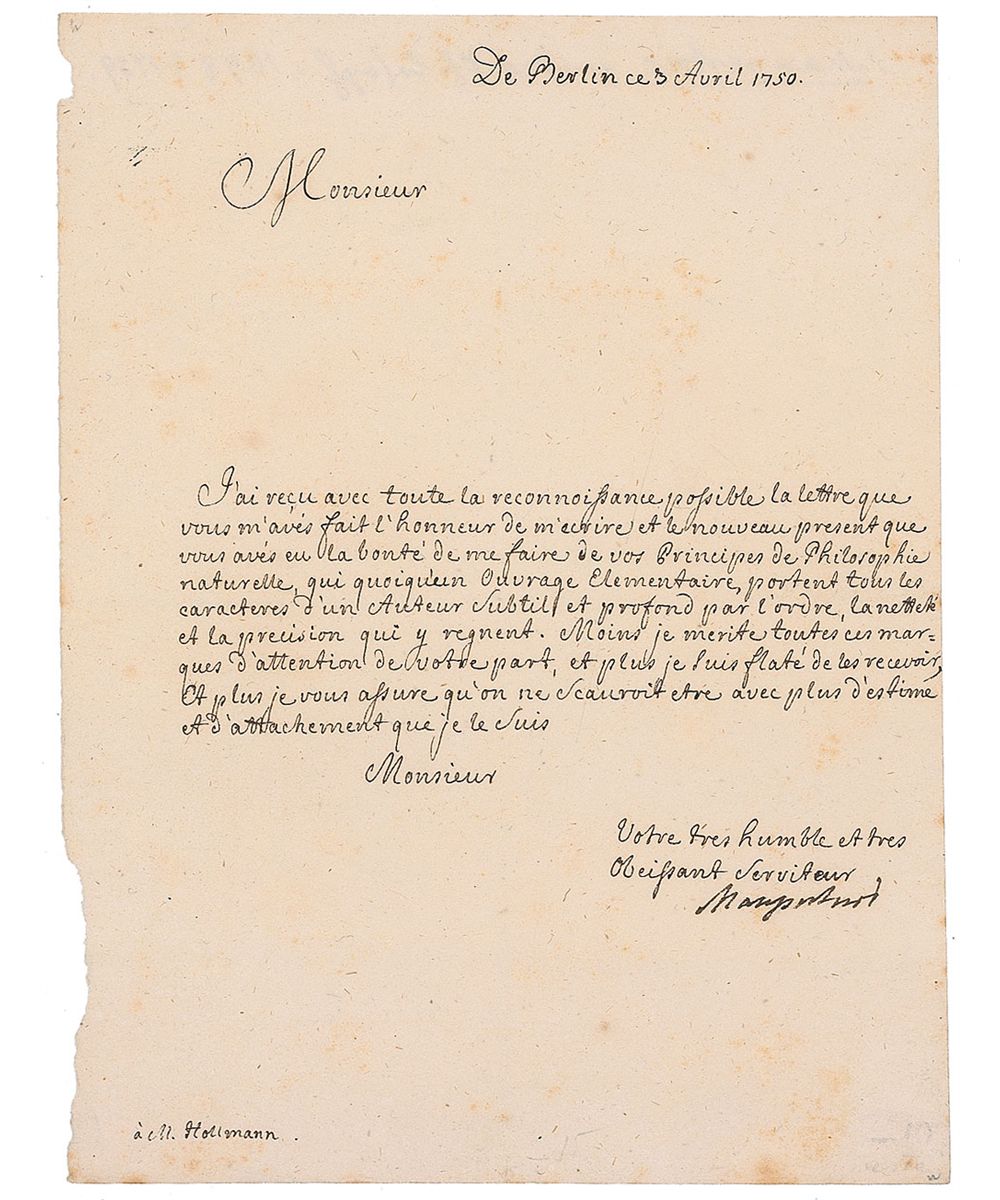 De Berlin ce 3 Avril 1750.
Monsieur
J'ai reçu avec toute la reconnoissance possible la lettre que
vous m'avés fait l'honneur de m'ecrire et le nouveau present que
vous avés eu la bonté de me faire de vos Principes de Philosophie
naturelle, qui quoiqu'un Ouvrage Elementaire, portent tous les
caracteres d'un Auteur Subtil et profond par l'ordre, la netteté
et la precision qui y regnent. Moins je merite toutes ces mar=
ques d'attention de votre part, et plus je suis flaté de les recevoir,
Et plus je vous assure qu'on ne scauroit etre avec plus d'estime
et d'attachement que je le suis
Monsieur
Votre tres humble et tres
Obeissant Serviteur
Maupertuis
à M. Hollmann.